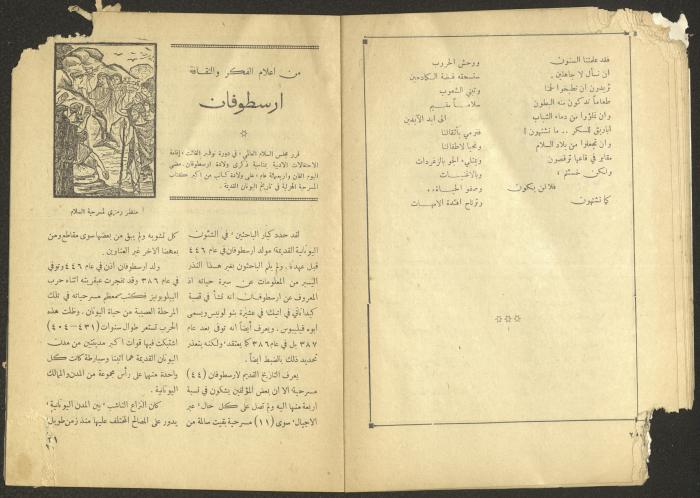 فقد علمتنا السنون
ان نسأل لا جاهلين .
تريدون ان تطبخوا لنا
طعاماً تدكون منه البطون
وان تملؤوا من دماء الشباب
اباريق للسكر .. ما تشتهون !
وان تجعلوا من بلاد السلام
مقابر في قاعها ترقصون
ولكن خسئتم ،
فلا لن يكون
كما تشتهون
ووحش الحروب
ستسحقه قبضة الكادحين
وتبني الشعوب
سلاماً مقيم
الى ابد الآبدين
فنرمي بأثقالنا
ونحيا لاطفالنا
ويمتلىء الجو بالزغردات
وبالاغنيات
وصفو الحياة ..
وترتاح افئدة الامهات
من اعلام الفكر والثقافة
ارسطوفان
قرر مجلس السلام العالمي ، في دورة نوفمبر الفائت ، إقامة
الاحتفالات الادبية بمناسبة ذكرى ولادة ارسطوفان . مضى
اليوم الفان واربعمائة عام ، على ولادة كاتب من اكبر كتاب
المسرحية الهزلية في تاريخ اليونان القديمة .
منظر رمزي لمسرحية السلام
لقد حدد كبار الباحثين ، في الشئون
اليونانية القديمة ، مولد ارسطوفان في عام ٤٤٦
قبل عهدنا ، ولم يلم الباحثون بغير هذا النذر
اليسير من المعلومات عن سيرة حياته اذ
المعروف عن ارسطوفان انه نشأ في قصبة
كيداثاني في اتيكا في عشيرة بنو لونيس ويسمى
ابوه فيليبوس . ويعرف أيضاً انه توفى بعد عام
٣٨٧ بل في عام ٣٨٦ كما يعتقد ، ولكنه يتعذر
تحديد ذلك بالضبط ايضاً .
يعرف التاريخ القديم لارسطوفان (٤٤)
مسرحية الا ان بعض المؤلفين يشكون في نسبة
اربعة منها اليه ولم تصل على كل حال ، عبر
الاجيال ، سوى (١١) مسرحية بقيت سالمة من
كل تشويه ولم يبق من بعضها سوى مقاطع ومن
بعضها الآخر غير العناوين .
ولد ارسطوفان أذن في عام ٤٤٦ وتوفى
في عام ٣٨٦ وقد تفجرت عبقريته اثناء حرب
البيلوبونيز فكتب معظم مسرحياته في تلك
المرحلة العصيبة من حياة اليونان . وظلت هذه
الحرب تستعر طوال سنوات (٤٣١ - ٤٠٤)
اشتبكت فيها قوات اكبر مدينتين من مدن
اليونان القديمة هما اثينا وسبارطة كانت كل
واحدة منهما على رأس مجموعة من المدن والممالك
اليونانية .
كان النزاع الناشب ، بين المدن اليونانية ،
يدور على المصالح المختلف عليها منذ زمن طويل